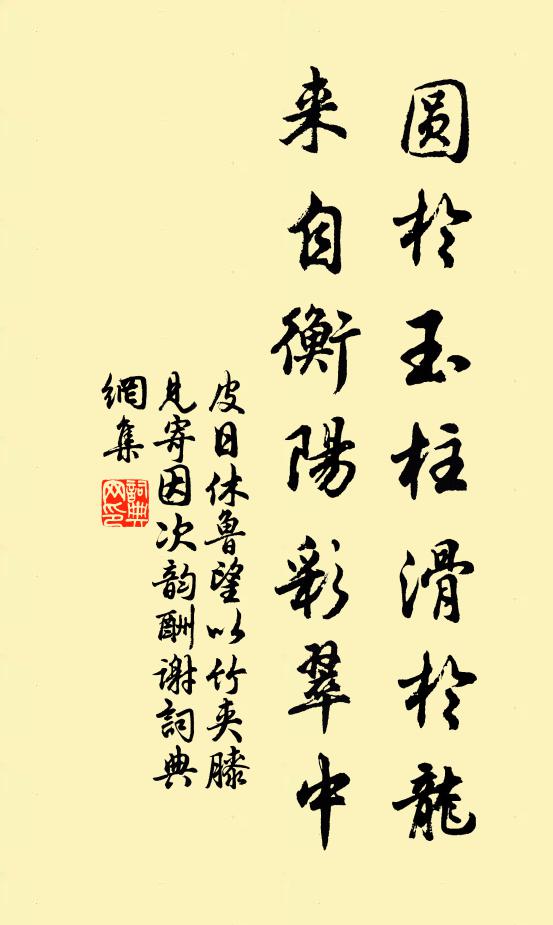 圆於玉柱滑於龍
来自衡陽彩翠中
皮日休魯望以竹夹膝
見寄因次韵酬谢詞典
網集
詞典網印